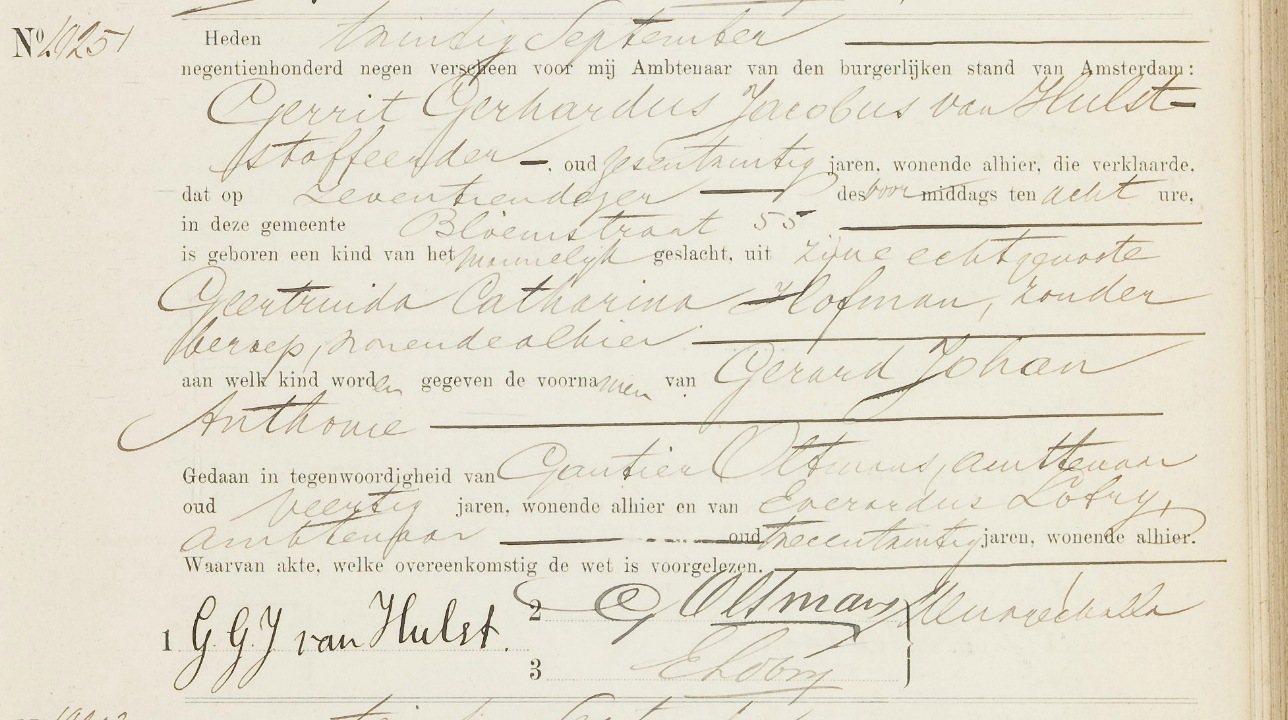 Nº 10251
Heden twintig September
negentienhonderd negen verscheen voor mij Ambtenaar van den burgerlijken stand van Amsterdam:
Gerrit Gerhardus Jacobus van Hulst
stoffeerder, oud zesentwintig jaren, wonende alhier, die verklaarde,
dat op zeventiendezer des voormiddags ten acht ure,
in deze gemeente Bloemstraat 55
is geboren een kind van het mannelijk geslacht, uit zijne echtgenoote
Geertruida Catharina Hofman, zonder
beroep, wonende alhier
aan welk kind worden gegeven de voornamen van Gerard Johan
Anthonie
Gedaan in tegenwoordigheid van Gautier Oltmans, ambtenaar
oud veertig jaren, wonende alhier en van Everardus Lobry,
ambtenaar oud tweeentwintig jaren, wonende alhier.
Waarvan akte, welke overeenkomstig de wet is voorgelezen.
1 G. G. J van Hulst. 2 G Oltmans
3 E Lobry